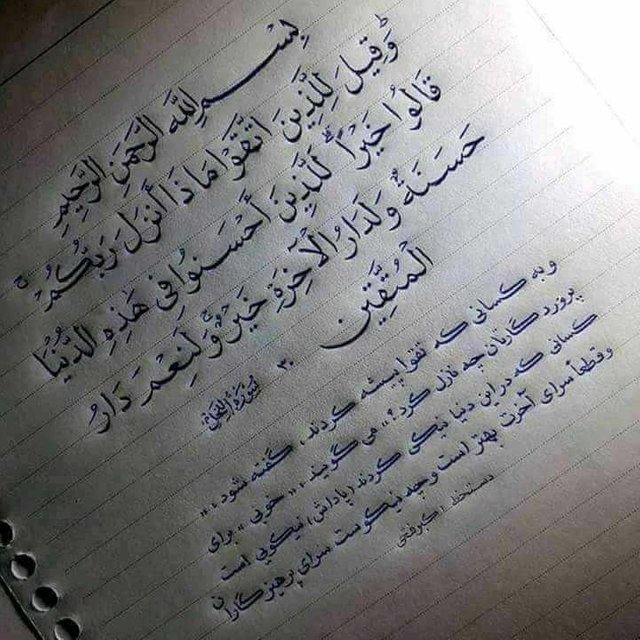 بِسْمِ اللهِ الرَّحْمَنِ الرَّحِيمِ
وَقِيلَ لِلَّذِينَ اتَّقَوْا مَا ذَا أَنْزَلَ رَبُّكُمْ
قَالُوا خَيْراً لِلَّذِينَ أَحْسَنُوا فِي هَذِهِ الدُّنْيَا
حَسَنَةٌ وَلَدَارُ الْآخِرَةِ خَيْرٌ وَلَنِعْمَ دَارُ
الْمُتَّقِينَ ۳۰ سورة النحل
و به کسانی که تقوا پیشه کردند، گفته شود: «
پروردگارتان چه نازل کرد؟» می‌گویند: «خوبی» برای
کسانی که در این دنیا نیکی کردند (پاداش) نیکویی است
و قطعاً سرای آخرت بهتر است و چه نیکوست سرای پرهیزگاران
دستخط: